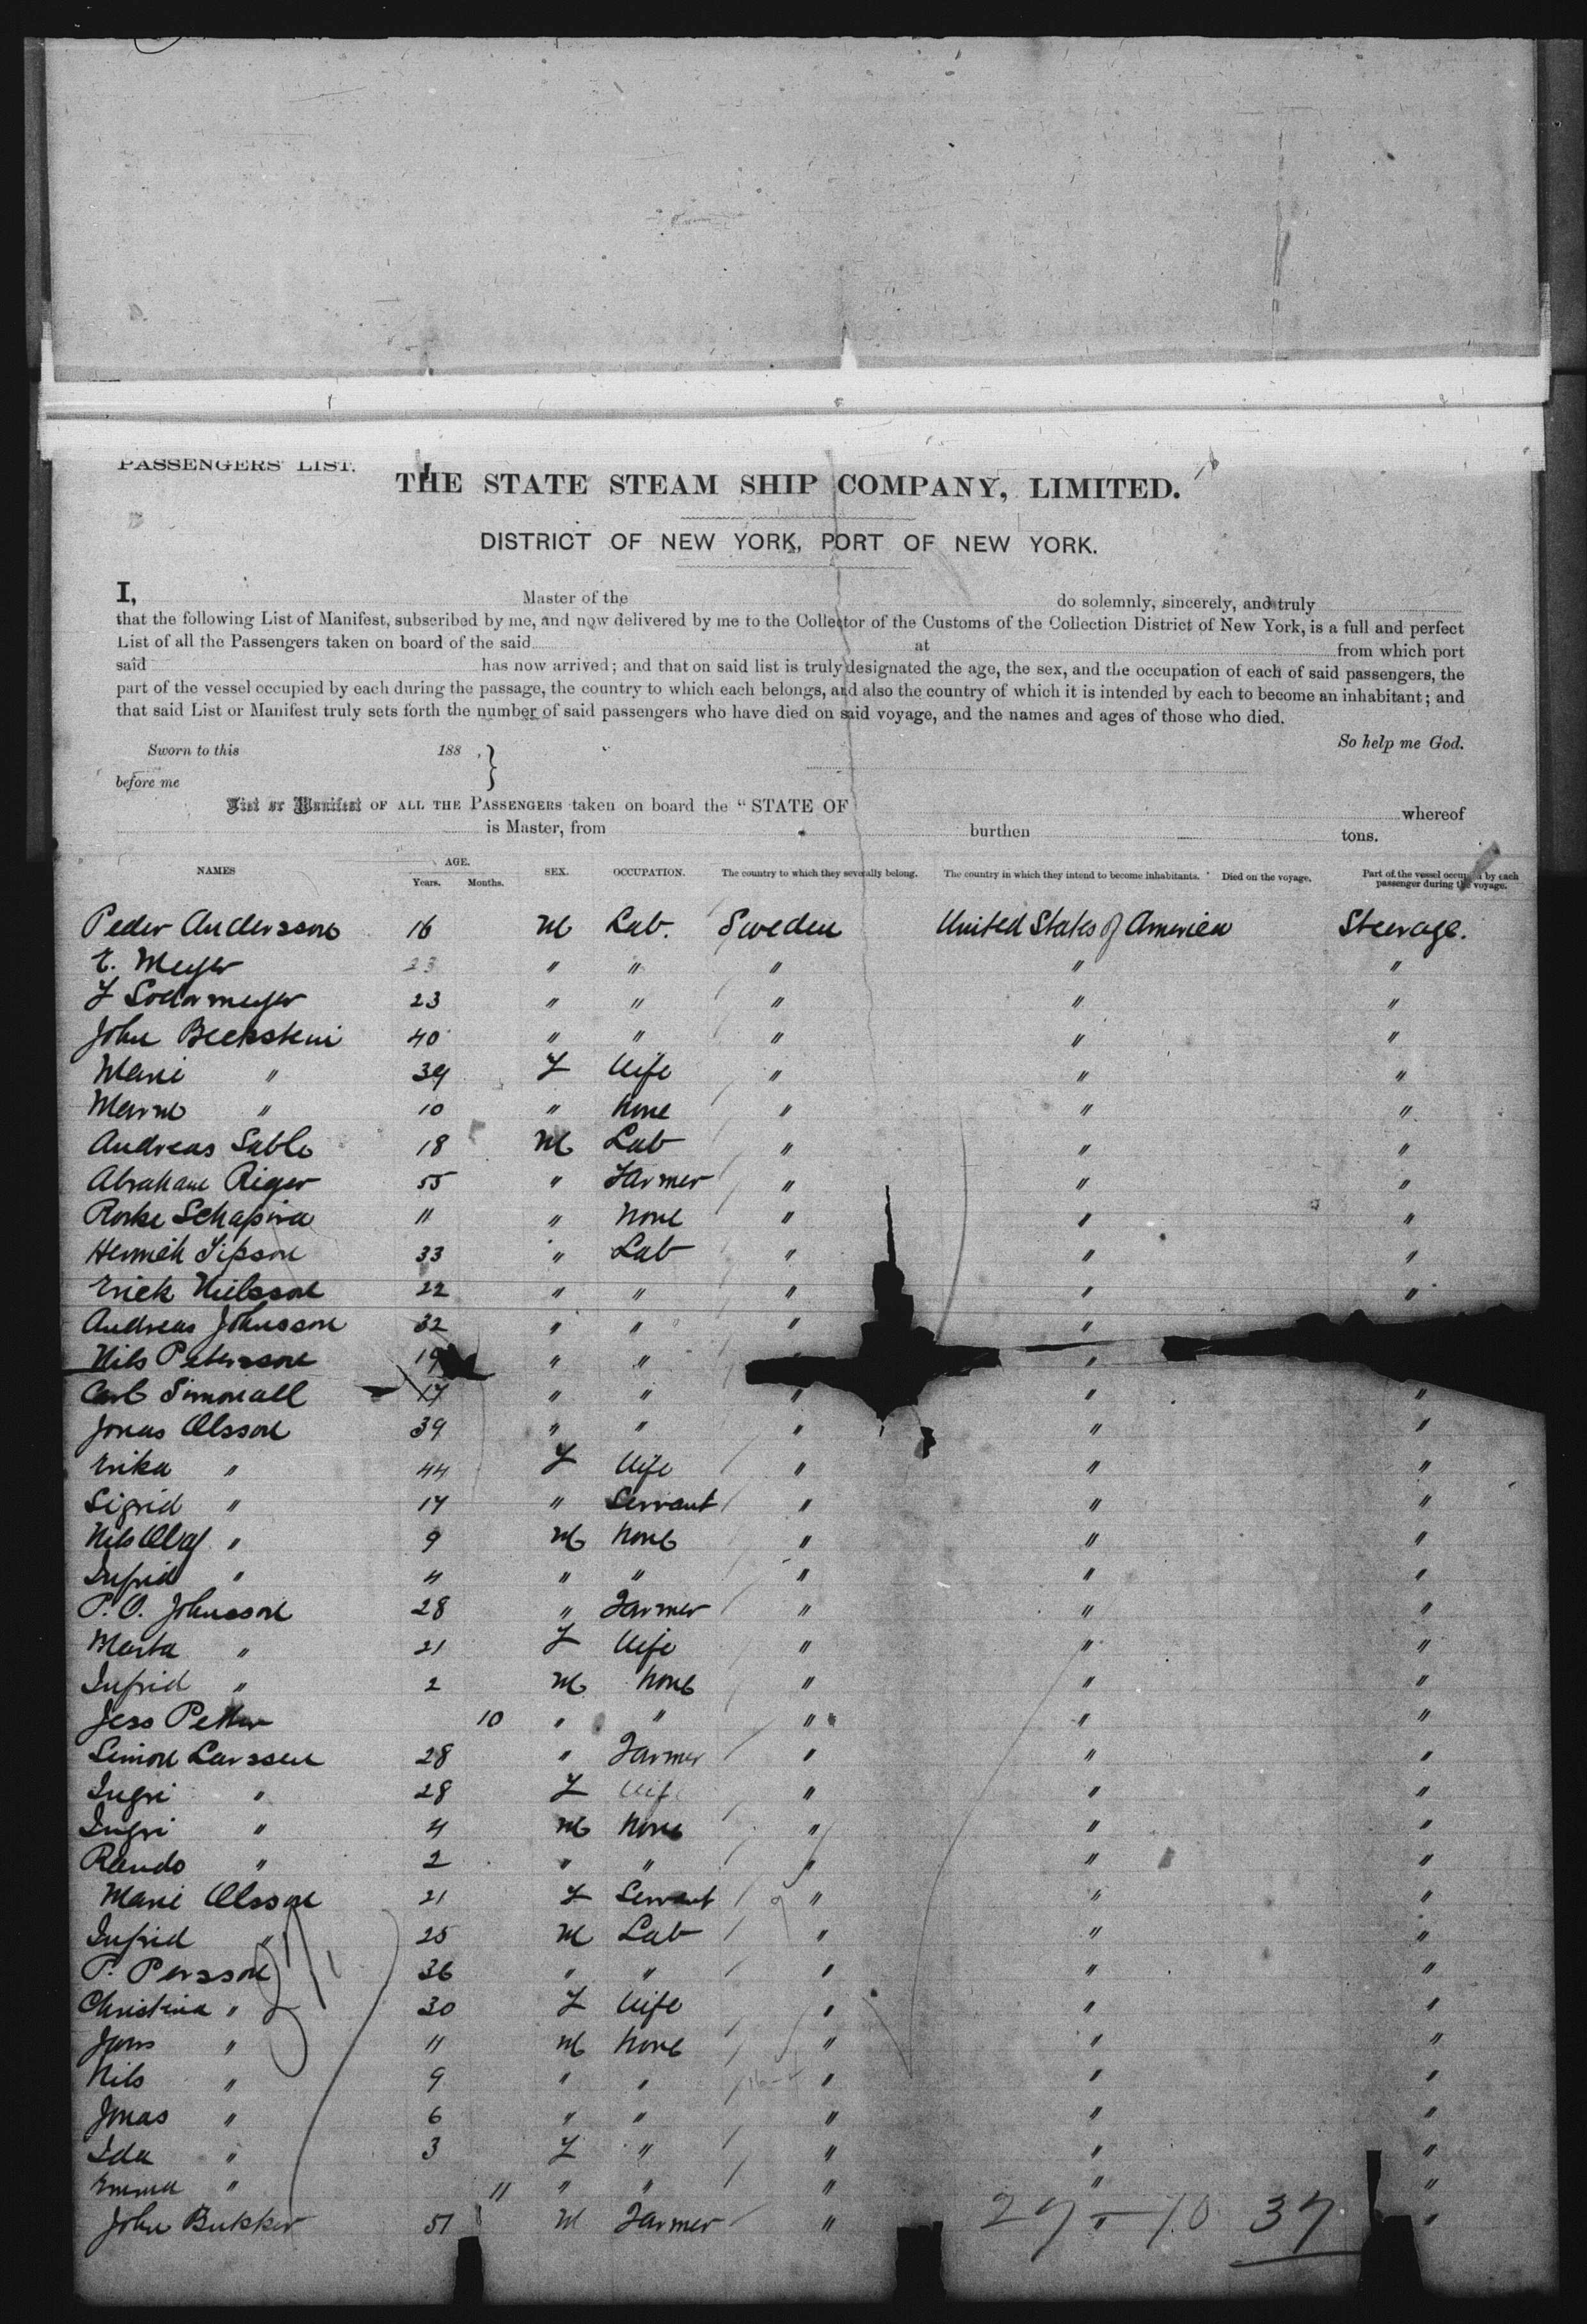 PASSENGERS' LIST.
THE STATE STEAM SHIP COMPANY, LIMITED.
DISTRICT OF NEW YORK, PORT OF NEW YORK.
I, Master of the do solemnly, sincerely, and truly
that the following List of Manifest, subscribed by me, and now delivered by me to the Collector of the Customs of the Collection District of New York, is a full and perfect
List of all the Passengers taken on board of the said at from which port
said has now arrived; and that on said list is truly designated the age, the sex, and the occupation of each of said passengers, the
part of the vessel occupied by each during the passage, the country to which each belongs, and also the country of which it is intended by each to become an inhabitant; and
that said List or Manifest truly sets forth the number of said passengers who have died on said voyage, and the names and ages of those who died.
So help me God.
Sworn to this 188
before me
List or Manifest OF ALL THE PASSENGERS taken on board the "STATE OF whereof
is Master, from burthen tons.
NAMES AGE. Years. Months. SEX. OCCUPATION. The country to which they severally belong. The country in which they intend to become inhabitants. Died on the voyage. Part of the vessel occupied by each passenger during the voyage.
Peder Andersson 16 M Lab. Sweden United States of America Steerage.
E. Meyer 23 " " " " "
F Sodermeyer 23 " " " " "
John Beckstein 40 " " " " "
Marie " 39 F Wife " " "
" 10 " None " " "
Andreas Sable 18 M Lab " " "
Abraham Riger 55 " Farmer " " "
Schapira 11 " None " " "
33 " Lab " " "
Erick Nielsson 22 " " " " "
Andreas Johnsson 32 " " " "
Nils Petersson 19 " " " "
Carl Simonall 17 " " " " "
Jonas Olsson 39 " " " " "
Erika " 44 F Wife " " "
Sigrid " 17 " Servant " " "
Nils Olaf " 9 M None " " "
Ingrid " 4 " " " " "
P. O. Johnsson 28 " Farmer " " "
Marta " 21 F Wife " " "
Ingrid " 2 M None " " "
Jess Petter 10 " " " " "
Simon Larssen 28 " Farmer " " "
Ingri " 28 F Wife " " "
Ingri " 4 M None " " "
Rando " 2 " " " " "
Marie Olsson 21 F Servant " " "
Ingrid " 25 M Lab " " "
P. Persson 36 " " " " "
Christina " 30 F Wife " " "
Jons " 11 M None " " "
Nils " 9 " " " " "
Jonas " 6 " " " " "
Ida " 3 F " " " "
Emma " 11 " " " " "
John Bukker 51 M Farmer " " "
27 - 10 37